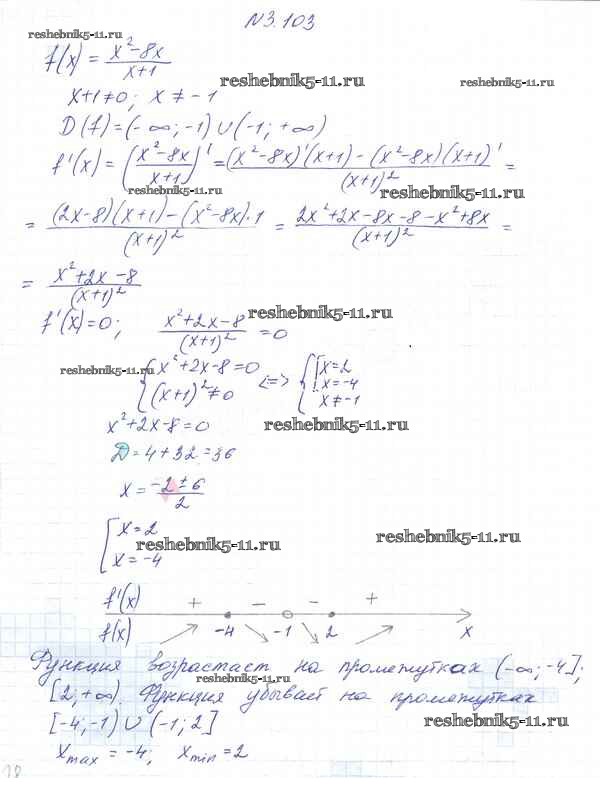 N3.103
reshebnik5-11.ru
f(x) = x²-8x / x+1
reshebnik5-11.ru
reshebnik5-11.ru
x+1≠0; x ≠ -1
D(f)=(-∞;-1)∪(-1;+∞)
f'(x) = (x²-8x / x+1)' = (x²-8x)'(x+1) - (x²-8x)(x+1)' / (x+1)² =
reshebnik5-11.ru
reshebnik5-11.ru
= (2x-8)(x+1)-(x²-8x)·1 / (x+1)² = 2x²+2x-8x-8-x²+8x / (x+1)² =
= x²+2x-8 / (x+1)²
reshebnik5-11.ru
f'(x)=0; x²+2x-8 / (x+1)² = 0
reshebnik5-11.ru
{ x²+2x-8=0 (x+1)²≠0 <=> { [ x=2 x=-4 x≠-1
x²+2x-8=0
reshebnik5-11.ru
D=4+32=36
x = -2±6 / 2
[ x=2
reshebnik5-11.ru
reshebnik5-11.ru
x=-4
f'(x) + - - +
f(x) -4 -1 2 x
Функция возрастает на промежутках (-∞;-4];
reshebnik5-11.ru
[2;+∞). Функция убывает на промежутках
[-4;-1) ∪ (-1;2]
reshebnik5-11.ru
x max = -4; x min = 2